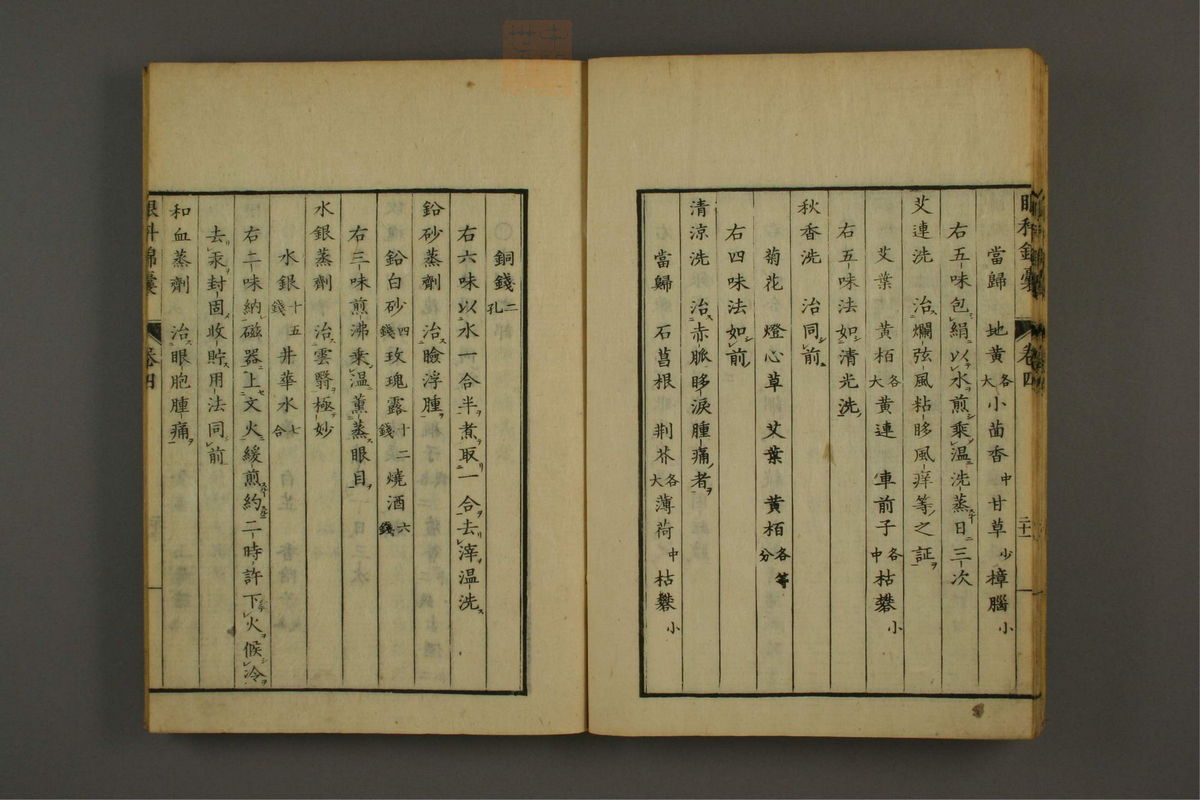 眼科錦囊 卷四 二十一
當歸 地黃各大 小茴香中 甘草少 樟腦小
右五味包絹以水煎乘温洗蒸日三次
艾連洗 治爛弦風粘眵風痒等之証
艾葉 黃栢各大 黃連 車前子各中 枯礬小
右五味法如清光洗
秋香洗 治同前
菊花 燈心草 艾葉 黃栢各等分
右四味法如前
清涼洗 治赤脈眵淚腫痛者
當歸 石菖根 荆芥各大 薄荷中 枯礬小
銅錢二孔
右六味以水一合半煮取一合去滓温洗
鉛砂蒸劑 治瞼浮腫
鉛白砂四錢 玫瑰露十二錢 燒酒六錢
右三味煎沸乘温薰蒸眼目
水銀蒸劑 治雲翳極妙
水銀十五錢 井華水七合
右二味納磁器上文火緩煎約二時許下火候冷
去汞封固收貯用法同前
和血蒸劑 治眼胞腫痛
眼科錦囊 卷四